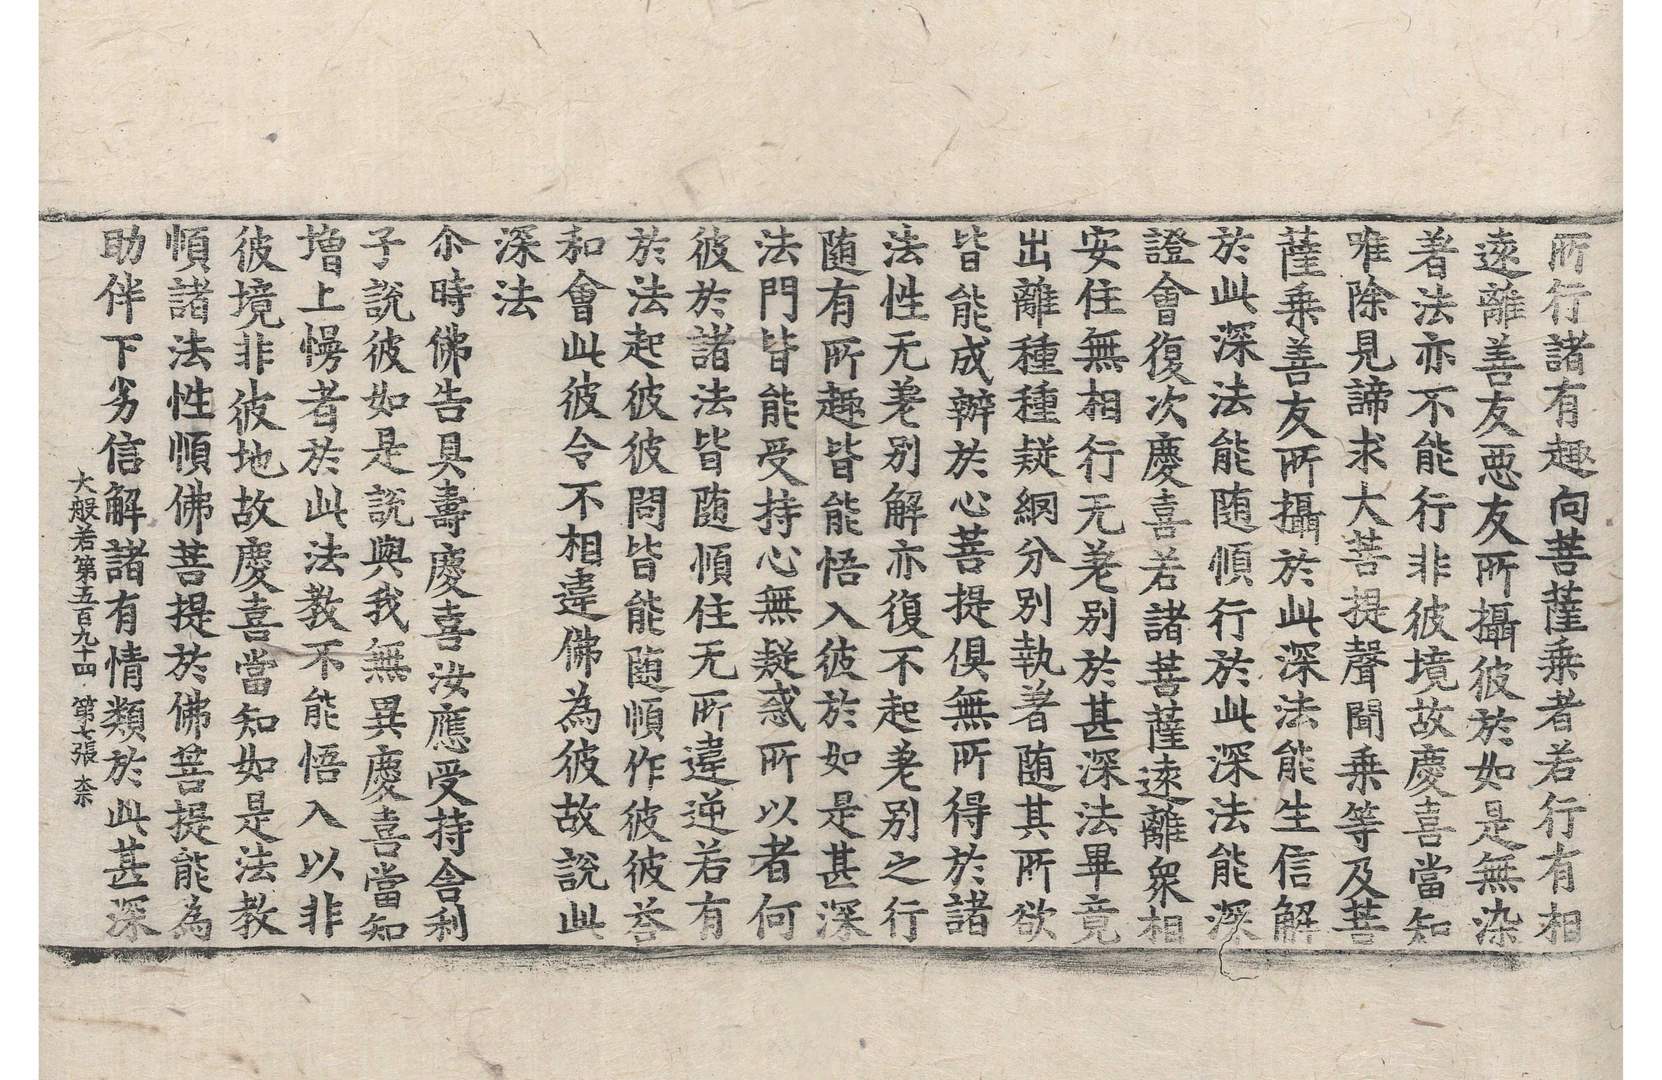 所行諸有趣向菩薩乗者若行有相
遠離善友惡友所攝彼於如是無染
著法亦不能行非彼境故慶喜當知
唯除見諦求大菩提聲聞乗等及菩
薩乗善友所攝於此深法能生信解
於此深法能随順行於此深法能深
證會復次慶喜若諸菩薩遠離衆相
安住無相行无差别於甚深法畢竟
出離種種疑網分别執著随其所欲
皆能成辦於心菩提俱無所得於諸
法性无差别解亦復不起差别之行
随有所趣皆能悟入彼於如是甚深
法門皆能受持心無疑惑所以者何
彼於諸法皆随順住无所違逆若有
於法起彼彼問皆能随順作彼彼荅
和會此彼令不相違佛為彼故說此
深法
尒時佛告具壽慶喜汝應受持舎利
子說彼如是說與我無異慶喜當知
增上慢者於此法教不能悟入以非
彼境非彼地故慶喜當知如是法教
順諸法性順佛菩提於佛菩提能為
助伴下劣信解諸有情類於此甚深
大般若第五百九十四 第七張 柰